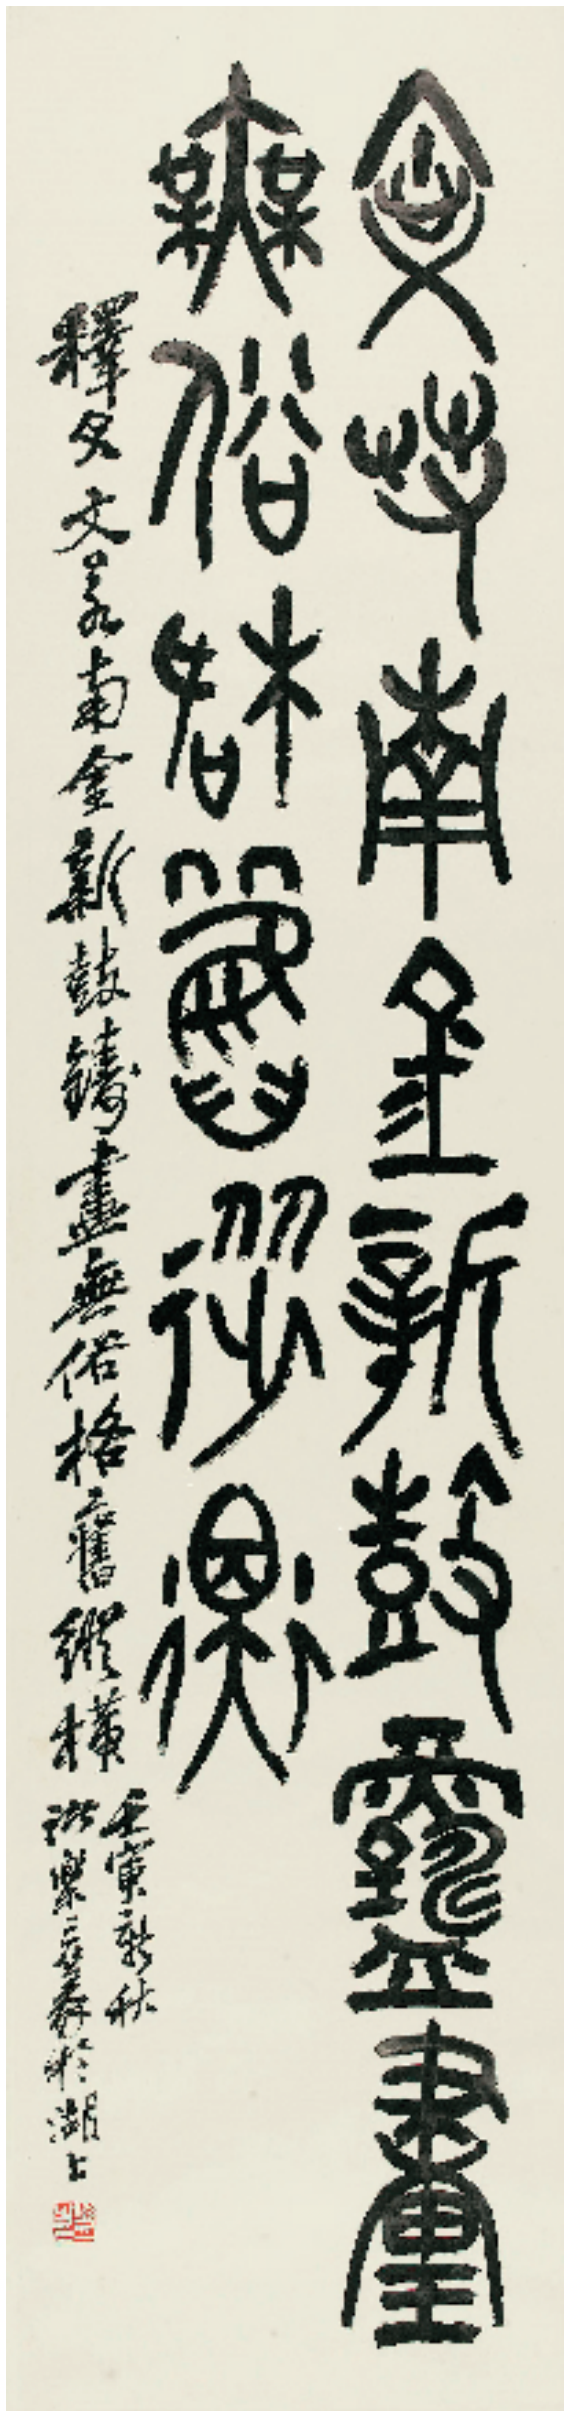 文若南金新鼓鑄畫
無俗格舊縱橫
釋文 文若南金新鼓鑄畫無俗格舊縱橫
壬寅新秋
樂 於湖上